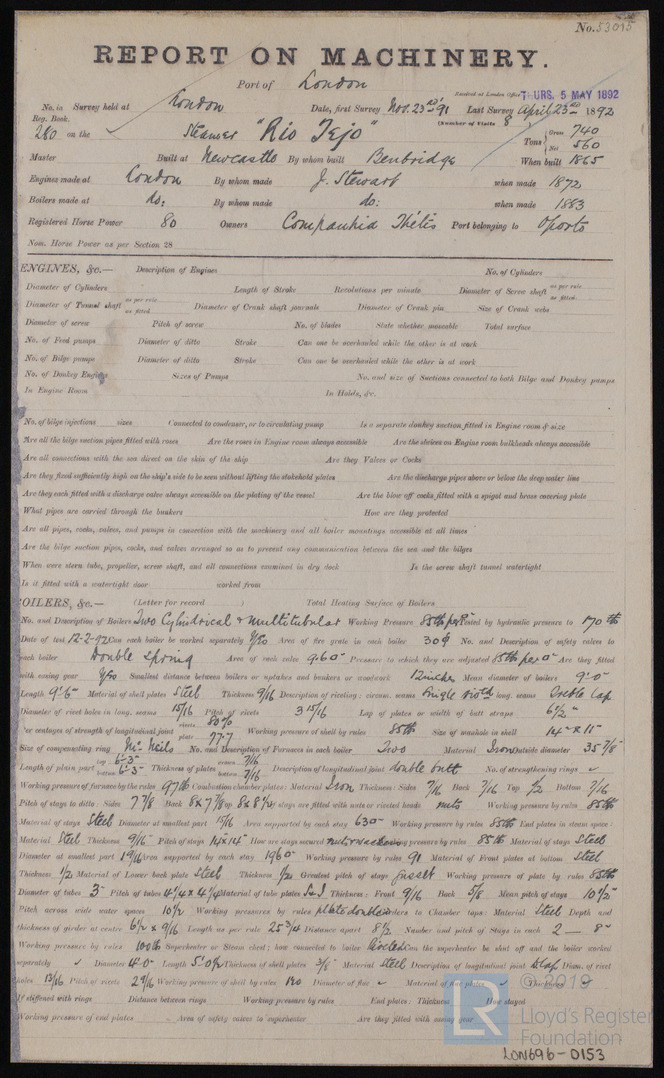 No. 53015
REPORT ON MACHINERY.
Port of London
Received at London Office THURS. 5 MAY 1892
No. in Survey held at London Date, first Survey Nov. 23rd 91 Last Survey April 23rd 1892
Reg. Book. (Number of Visits 8
260 on the Steamer "Rio Tejo" Tons Gross 740
Net 560
Master Built at Newcastle By whom built Benbridge When built 1865
Engines made at London By whom made J. Stewart when made 1872
Boilers made at do: By whom made do: when made 1883
Registered Horse Power 80 Owners Companhia Thétis Port belonging to Oporto
Nom. Horse Power as per Section 28
ENGINES, &c.— Description of Engines No. of Cylinders
Diameter of Cylinders Length of Stroke Revolutions per minute Diameter of Screw shaft as per rule as fitted
Diameter of Tunnel shaft as per rule as fitted Diameter of Crank shaft journals Diameter of Crank pin Size of Crank webs
Diameter of screw Pitch of screw No. of blades State whether moveable Total surface
No. of Feed pumps Diameter of ditto Stroke Can one be overhauled while the other is at work
No. of Bilge pumps Diameter of ditto Stroke Can one be overhauled while the other is at work
No. of Donkey Engines Sizes of Pumps No. and size of Suctions connected to both Bilge and Donkey pumps
In Engine Room In Holds, &c.
No. of bilge injections sizes Connected to condenser, or to circulating pump Is a separate donkey suction fitted in Engine room & size
Are all the bilge suction pipes fitted with roses Are the roses in Engine room always accessible Are the sluices on Engine room bulkheads always accessible
Are all connections with the sea direct on the skin of the ship Are they Valves or Cocks
Are they fixed sufficiently high on the ship's side to be seen without lifting the stokehold plates Are the discharge pipes above or below the deep water line
Are they each fitted with a discharge valve always accessible on the plating of the vessel Are the blow off cocks fitted with a spigot and brass covering plate
What pipes are carried through the bunkers How are they protected
Are all pipes, cocks, valves, and pumps in connection with the machinery and all boiler mountings accessible at all times
Are the bilge suction pipes, cocks, and valves arranged so as to prevent any communication between the sea and the bilges
When were stern tube, propeller, screw shaft, and all connections examined in dry dock Is the screw shaft tunnel watertight
Is it fitted with a watertight door worked from
BOILERS, &c.— (Letter for record ) Total Heating Surface of Boilers
No. and Description of Boilers Two Cylindrical & multitubular Working Pressure 85 lb per □" Tested by hydraulic pressure to 170 lb
Date of test 12-2-92 Can each boiler be worked separately Yes Area of fire grate in each boiler 30 □ No. and Description of safety valves to
each boiler Double Spring Area of each valve 9.60" Pressure to which they are adjusted 85 lb per □" Are they fitted
with easing gear Yes Smallest distance between boilers or uptakes and bunkers or woodwork 12 inches Mean diameter of boilers 9'.0"
Length 9'.6" Material of shell plates Steel Thickness 9/16 Description of riveting: circum. seams Single rivtd long. seams Treble Lap
Diameter of rivet holes in long. seams 15/16 Pitch of rivets 3 15/16 Lap of plates or width of butt straps 6 1/2"
Per centages of strength of longitudinal joint rivets 80% plate 77.7 Working pressure of shell by rules 85 lb Size of manhole in shell 14" x 11"
Size of compensating ring McNeils No. and Description of Furnaces in each boiler Two Material Iron Outside diameter 35 7/8
Length of plain part top 6'.3" bottom 6'.3" Thickness of plates crown 7/16 bottom 7/16 Description of longitudinal joint double butt No. of strengthening rings
Working pressure of furnace by the rules 97 lb Combustion chamber plates: Material Iron Thickness: Sides 7/16 Back 7/16 Top 1/2 Bottom 7/16
Pitch of stays to ditto: Sides 7 7/8 Back 8 x 7 7/8 Top 8 x 8 1/2 If stays are fitted with nuts or riveted heads nuts Working pressure by rules 85 lb
Material of stays Steel Diameter at smallest part 15/16 Area supported by each stay 630" Working pressure by rules 85 lb End plates in steam space:
Material Steel Thickness 9/16 Pitch of stays 14 x 14 How are stays secured nuts Working pressure by rules 85 lb Material of stays Steel
Diameter at smallest part 1 9/16 Area supported by each stay 1960" Working pressure by rules 91 Material of Front plates at bottom Steel
Thickness 1/2 Material of Lower back plate Steel Thickness 1/2 Greatest pitch of stays Gusset Working pressure of plate by rules 85 lb
Diameter of tubes 3" Pitch of tubes 4 1/4 x 4 1/4 Material of tube plates S & I Thickness: Front 9/16 Back 5/8 Mean pitch of stays 10 1/2"
Pitch across wide water spaces 10 1/2 Working pressures by rules plate doubled Girders to Chamber tops: Material Steel Depth and
thickness of girder at centre 6 1/2 x 9/16 Length as per rule 25 3/4 Distance apart 8 1/2 Number and pitch of Stays in each 2 — 8"
Working pressure by rules 100 lb Superheater or Steam chest; how connected to boiler Riveted Can the superheater be shut off and the boiler worked
separately Diameter 4'.0" Length 5'.0 1/2 Thickness of shell plates 3/8 Material steel Description of longitudinal joint D Lap Diam. of rivet
holes 13/16 Pitch of rivets 2 9/16 Working pressure of shell by rules 120 Diameter of flue Material of flue plates Thickness
If stiffened with rings Distance between rings Working pressure by rules End plates: Thickness How stayed
Working pressure of end plates Area of safety valves to superheater Are they fitted with easing gear
© 2019
LR
Lloyd's Register
Foundation
LON696-0153